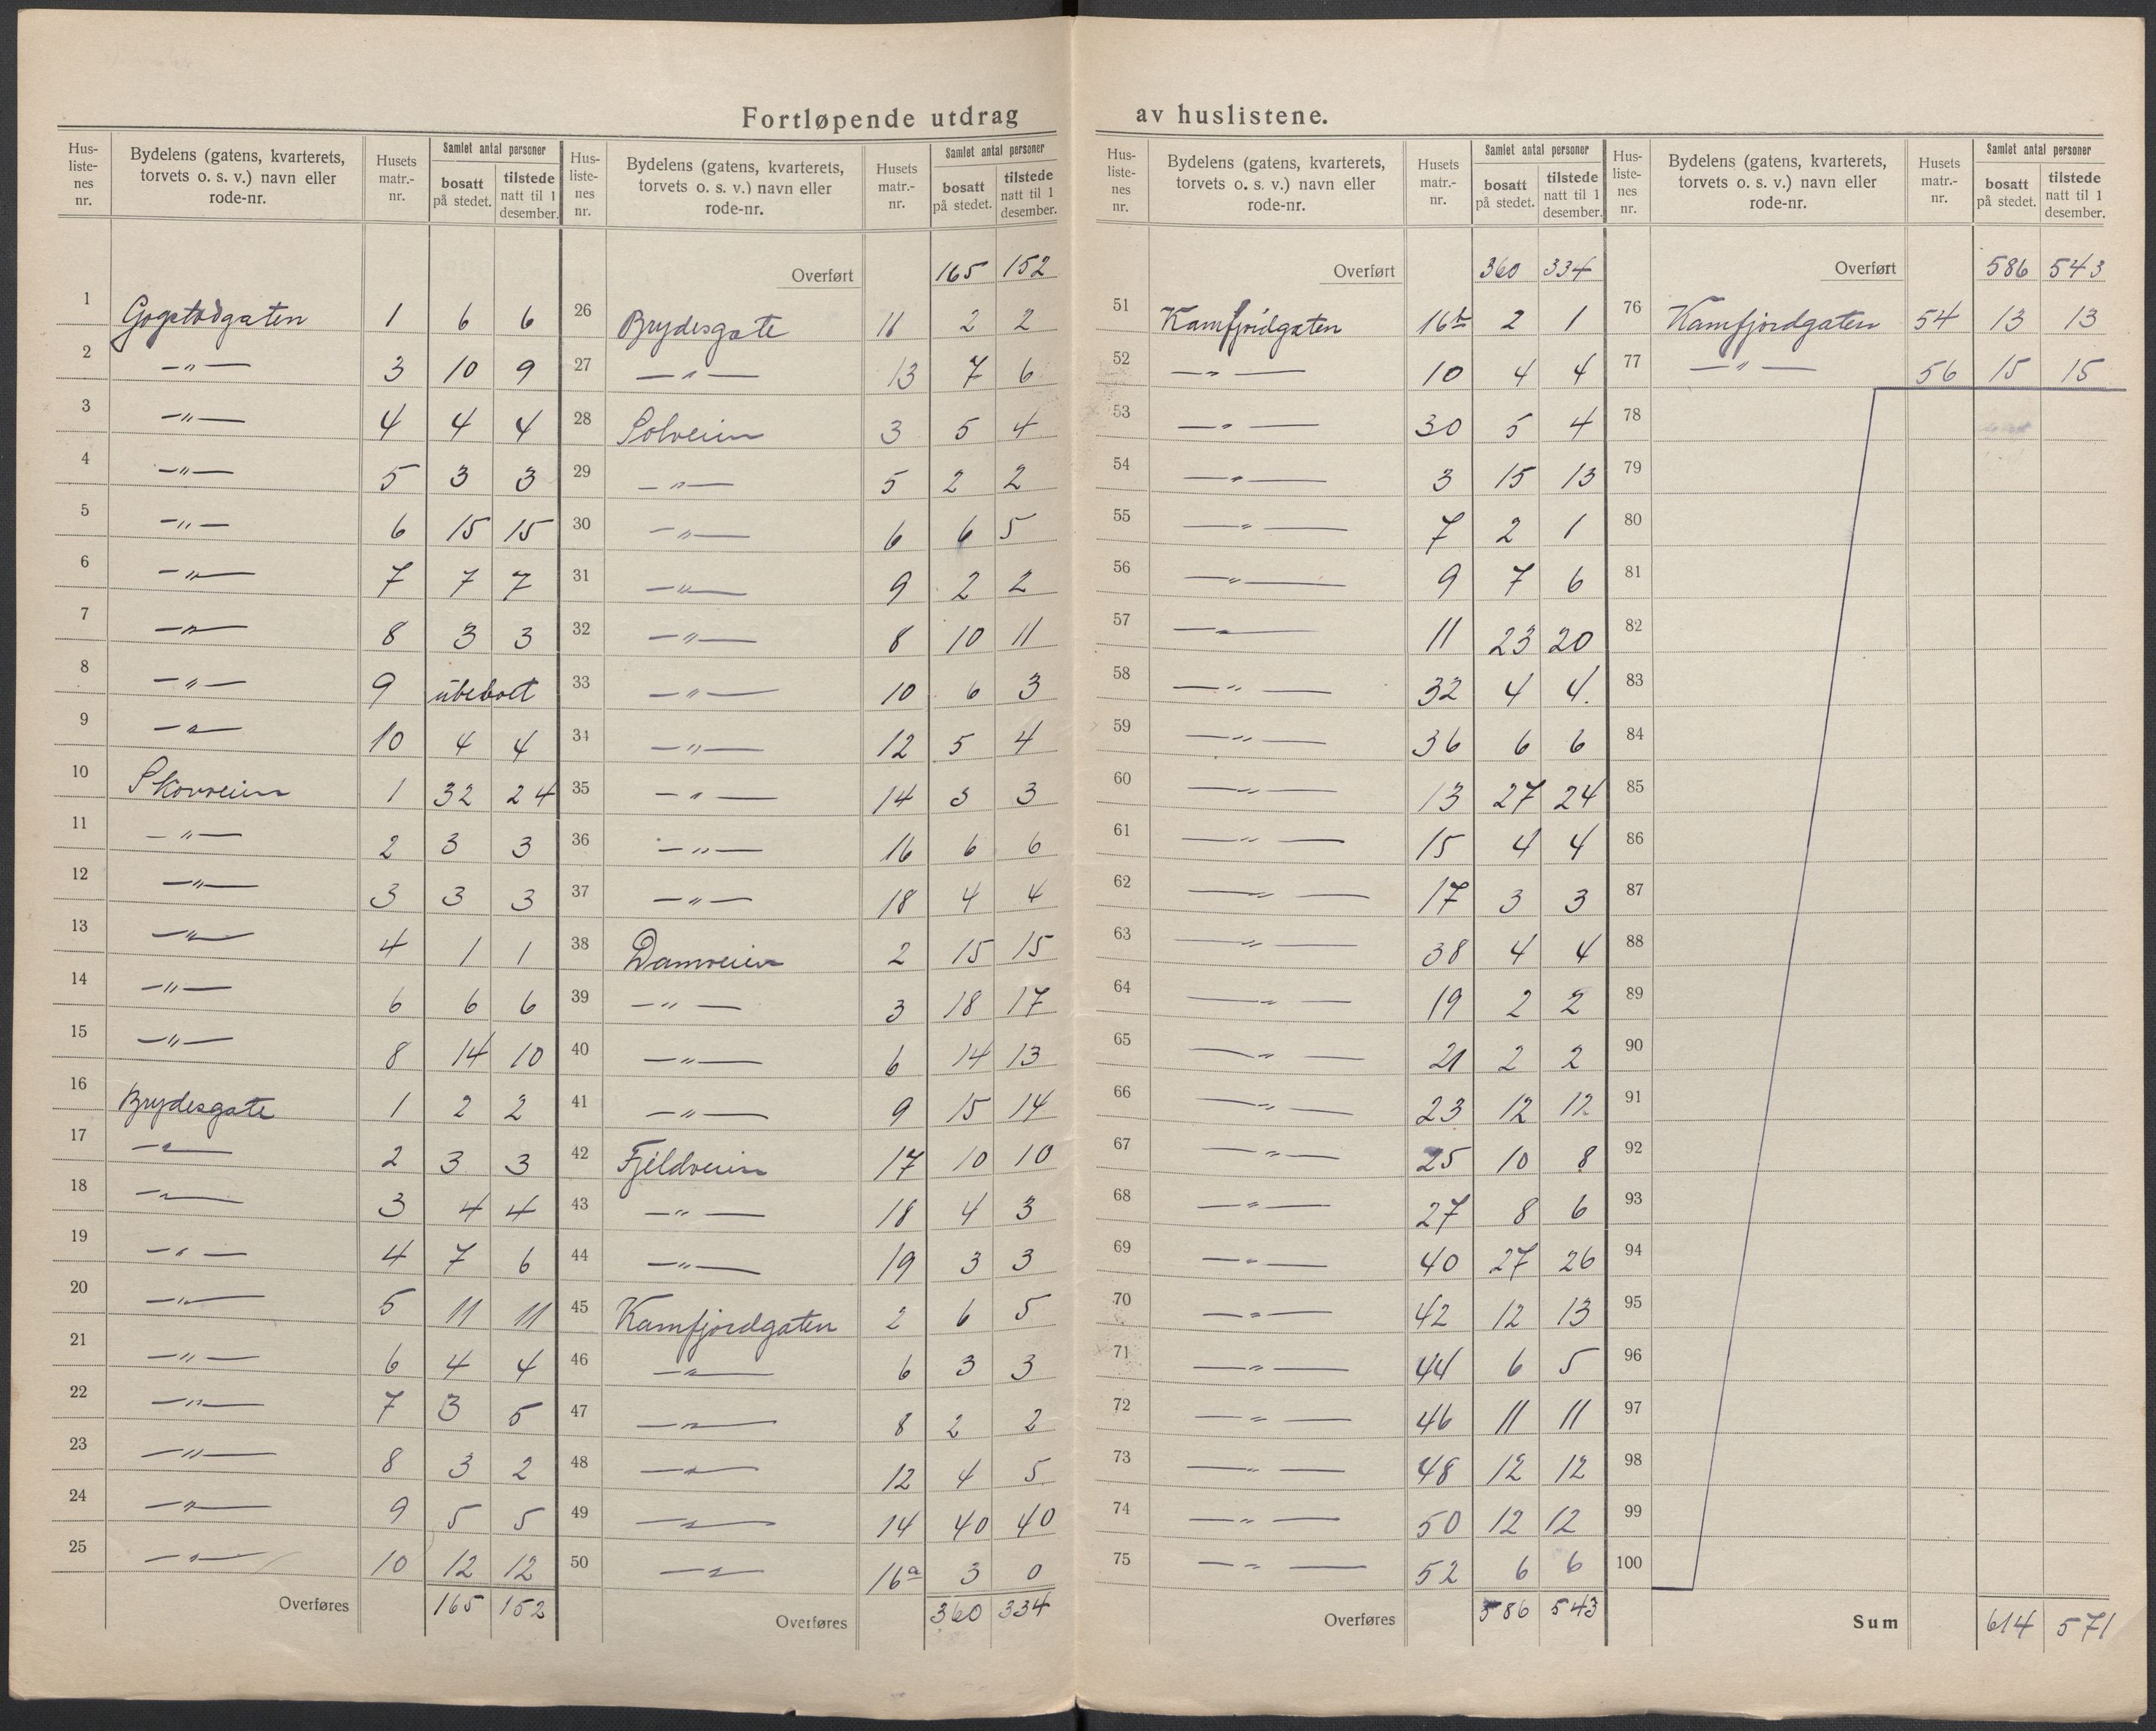 Fortløpende utdrag av huslistene.
Hus-listenes nr. | Bydelens (gatens, kvarterets, torvets o. s. v.) navn eller rode-nr. | Husets matr.-nr. | Samlet antal personer bosatt på stedet. | tilstede natt til 1 desember.
1 Gogstadgaten 1 6 6
2 —"— 3 10 9
3 —"— 4 4 4
4 —"— 5 3 3
5 —"— 6 15 15
6 —"— 7 7 7
7 —"— 8 3 3
8 —"— 9 ubebodt
9 —"— 10 4 4
10 Skovveien 1 32 24
11 —"— 2 3 3
12 —"— 3 3 3
13 —"— 4 1 1
14 —"— 6 6 6
15 —"— 8 14 10
16 Brydesgate 1 2 2
17 —"— 2 3 3
18 —"— 3 4 4
19 —"— 4 7 6
20 —"— 5 11 11
21 —"— 6 4 4
22 —"— 7 3 5
23 —"— 8 3 2
24 —"— 9 5 5
25 —"— 10 12 12
Overføres 165 152
Hus-listenes nr. | Bydelens (gatens, kvarterets, torvets o. s. v.) navn eller rode-nr. | Husets matr.-nr. | Samlet antal personer bosatt på stedet. | tilstede natt til 1 desember.
Overført 165 152
26 Brydesgate 11 2 2
27 —"— 13 7 6
28 Solveien 3 5 4
29 —"— 5 2 2
30 —"— 6 6 5
31 —"— 9 2 2
32 —"— 8 10 11
33 —"— 10 6 3
34 —"— 12 5 4
35 —"— 14 3 3
36 —"— 16 6 6
37 —"— 18 4 4
38 Damveien 2 15 15
39 —"— 3 18 17
40 —"— 6 14 13
41 —"— 9 15 14
42 Fjeldveien 17 10 10
43 —"— 18 4 3
44 —"— 19 3 3
45 Kamfjordgaten 2 6 5
46 —"— 6 3 3
47 —"— 8 2 2
48 —"— 12 4 5
49 —"— 14 40 40
50 —"— 16a 3 0
Overføres 360 334
Hus-listenes nr. | Bydelens (gatens, kvarterets, torvets o. s. v.) navn eller rode-nr. | Husets matr.-nr. | Samlet antal personer bosatt på stedet. | tilstede natt til 1 desember.
Overført 360 334
51 Kamfjordgaten 16b 2 1
52 —"— 10 4 4
53 —"— 30 5 4
54 —"— 3 15 13
55 —"— 7 2 1
56 —"— 9 7 6
57 —"— 11 23 20
58 —"— 32 4 4.
59 —"— 36 6 6
60 —"— 13 27 24
61 —"— 15 4 4
62 —"— 17 3 3
63 —"— 38 4 4
64 —"— 19 2 2
65 —"— 21 2 2
66 —"— 23 12 12
67 —"— 25 10 8
68 —"— 27 8 6
69 —"— 40 27 26
70 —"— 42 12 13
71 —"— 44 6 5
72 —"— 46 11 11
73 —"— 48 12 12
74 —"— 50 12 12
75 —"— 52 6 6
Overføres 586 543
Hus-listenes nr. | Bydelens (gatens, kvarterets, torvets o. s. v.) navn eller rode-nr. | Husets matr.-nr. | Samlet antal personer bosatt på stedet. | tilstede natt til 1 desember.
Overført 586 543
76 Kamfjordgaten 54 13 13
77 —"— 56 15 15
78
79
80
81
82
83
84
85
86
87
88
89
90
91
92
93
94
95
96
97
98
99
100
Sum 614 571